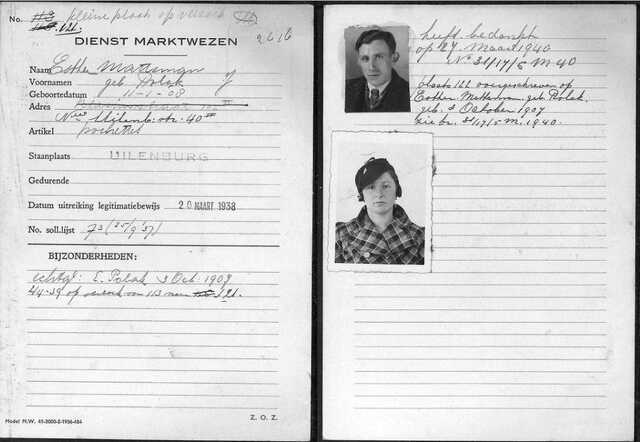 No. 113 kleine plaats op verzoek
121.
DIENST MARKTWEZEN
2616
Naam Esther Mattsman J
Voornamen geb Polak
Geboortedatum 11-1-08
Adres
Nwe Uilenb. str. 40 III
Artikel pochettes
Staanplaats UILENBURG
Gedurende
Datum uitreiking legitimatiebewijs 20 MAART 1938
No. soll.lijst 73 (25/9 '37)
BIJZONDERHEDEN:
echtg: E. Polak 3 Oct. 1907
4/4-39 op verzoek van 113 naar 121.
Model M.W. 41-2000-2-1936-484
Z. O. Z.
heeft bedankt
op 27 Maart 1940
No 31/17/5 M. 40
plaats 121 overgeschreven op
Esther geb. Polak,
geb. 3 October 1907
zie br. 31/17/5 M. 1940.